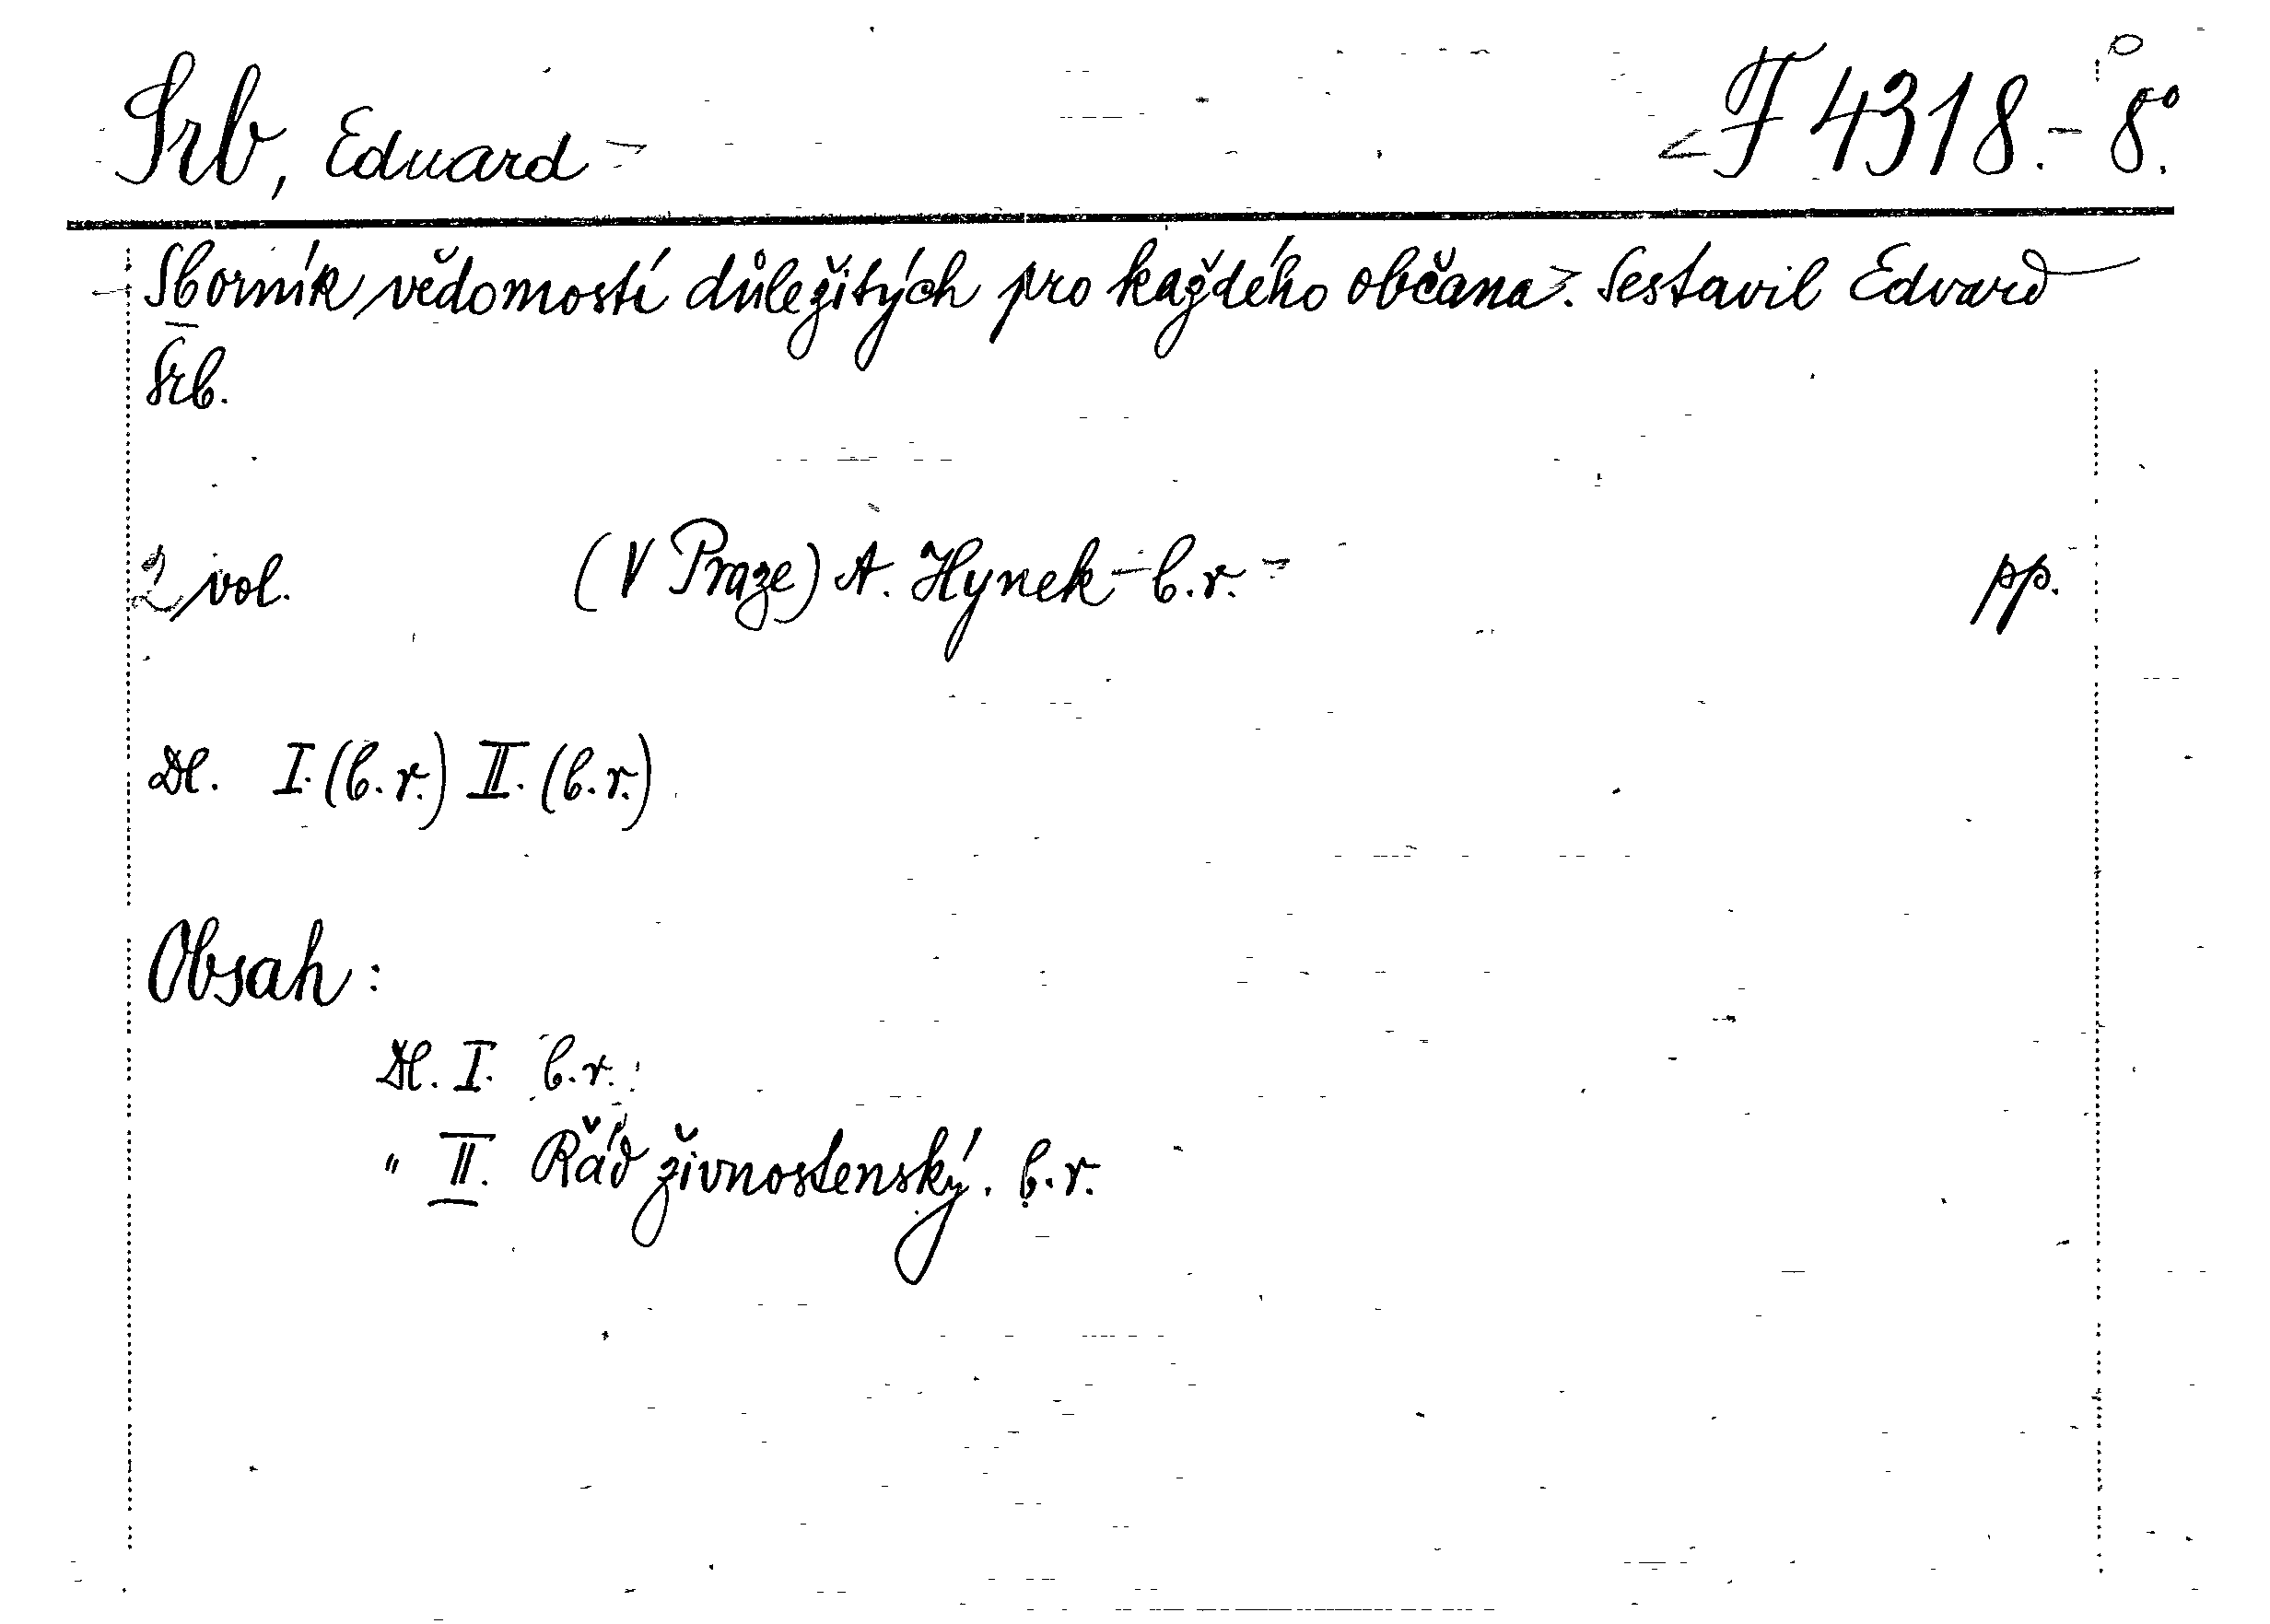 Srb, Eduard F 4318.- 8º.
Sborník vědomostí důležitých pro každého občana. Sestavil Edvard
Srb.
2 vol. (V Praze) A. Hynek - b.r. - pp.
Dl. I. (b.r.) II. (b.r.)
Obsah:
Dl. I. b.r.
" II. Řád živnostenský. b.r.